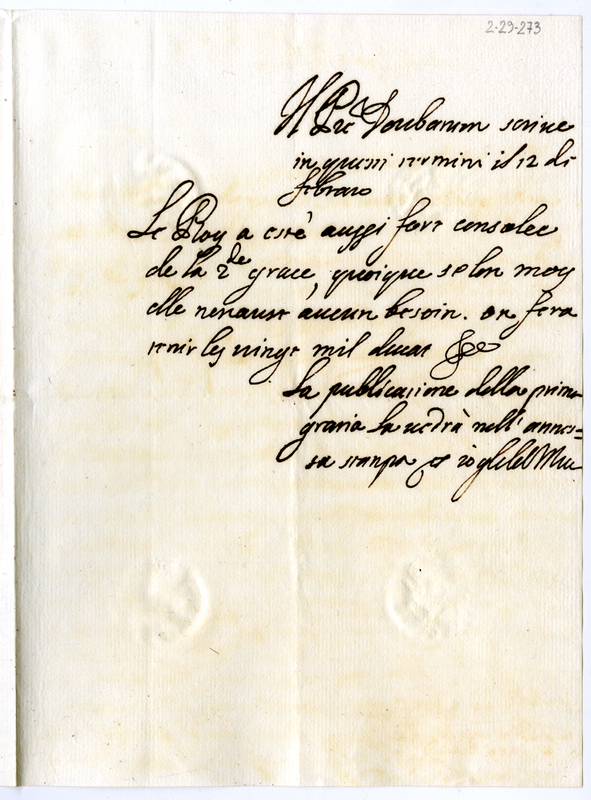 2-29-273
Il Pre Doubarum scrive
in questi termini il 12 di
febraro
Le Roy a esté aussi fort consolee
de la 2.de grace, quoique selon moy
elle n'en aust aucun besoin. on fera
tenir les vingt mil ducat &c
La publicazione della prima
grazia la vedrà nell' annes=
sa stampa, et io